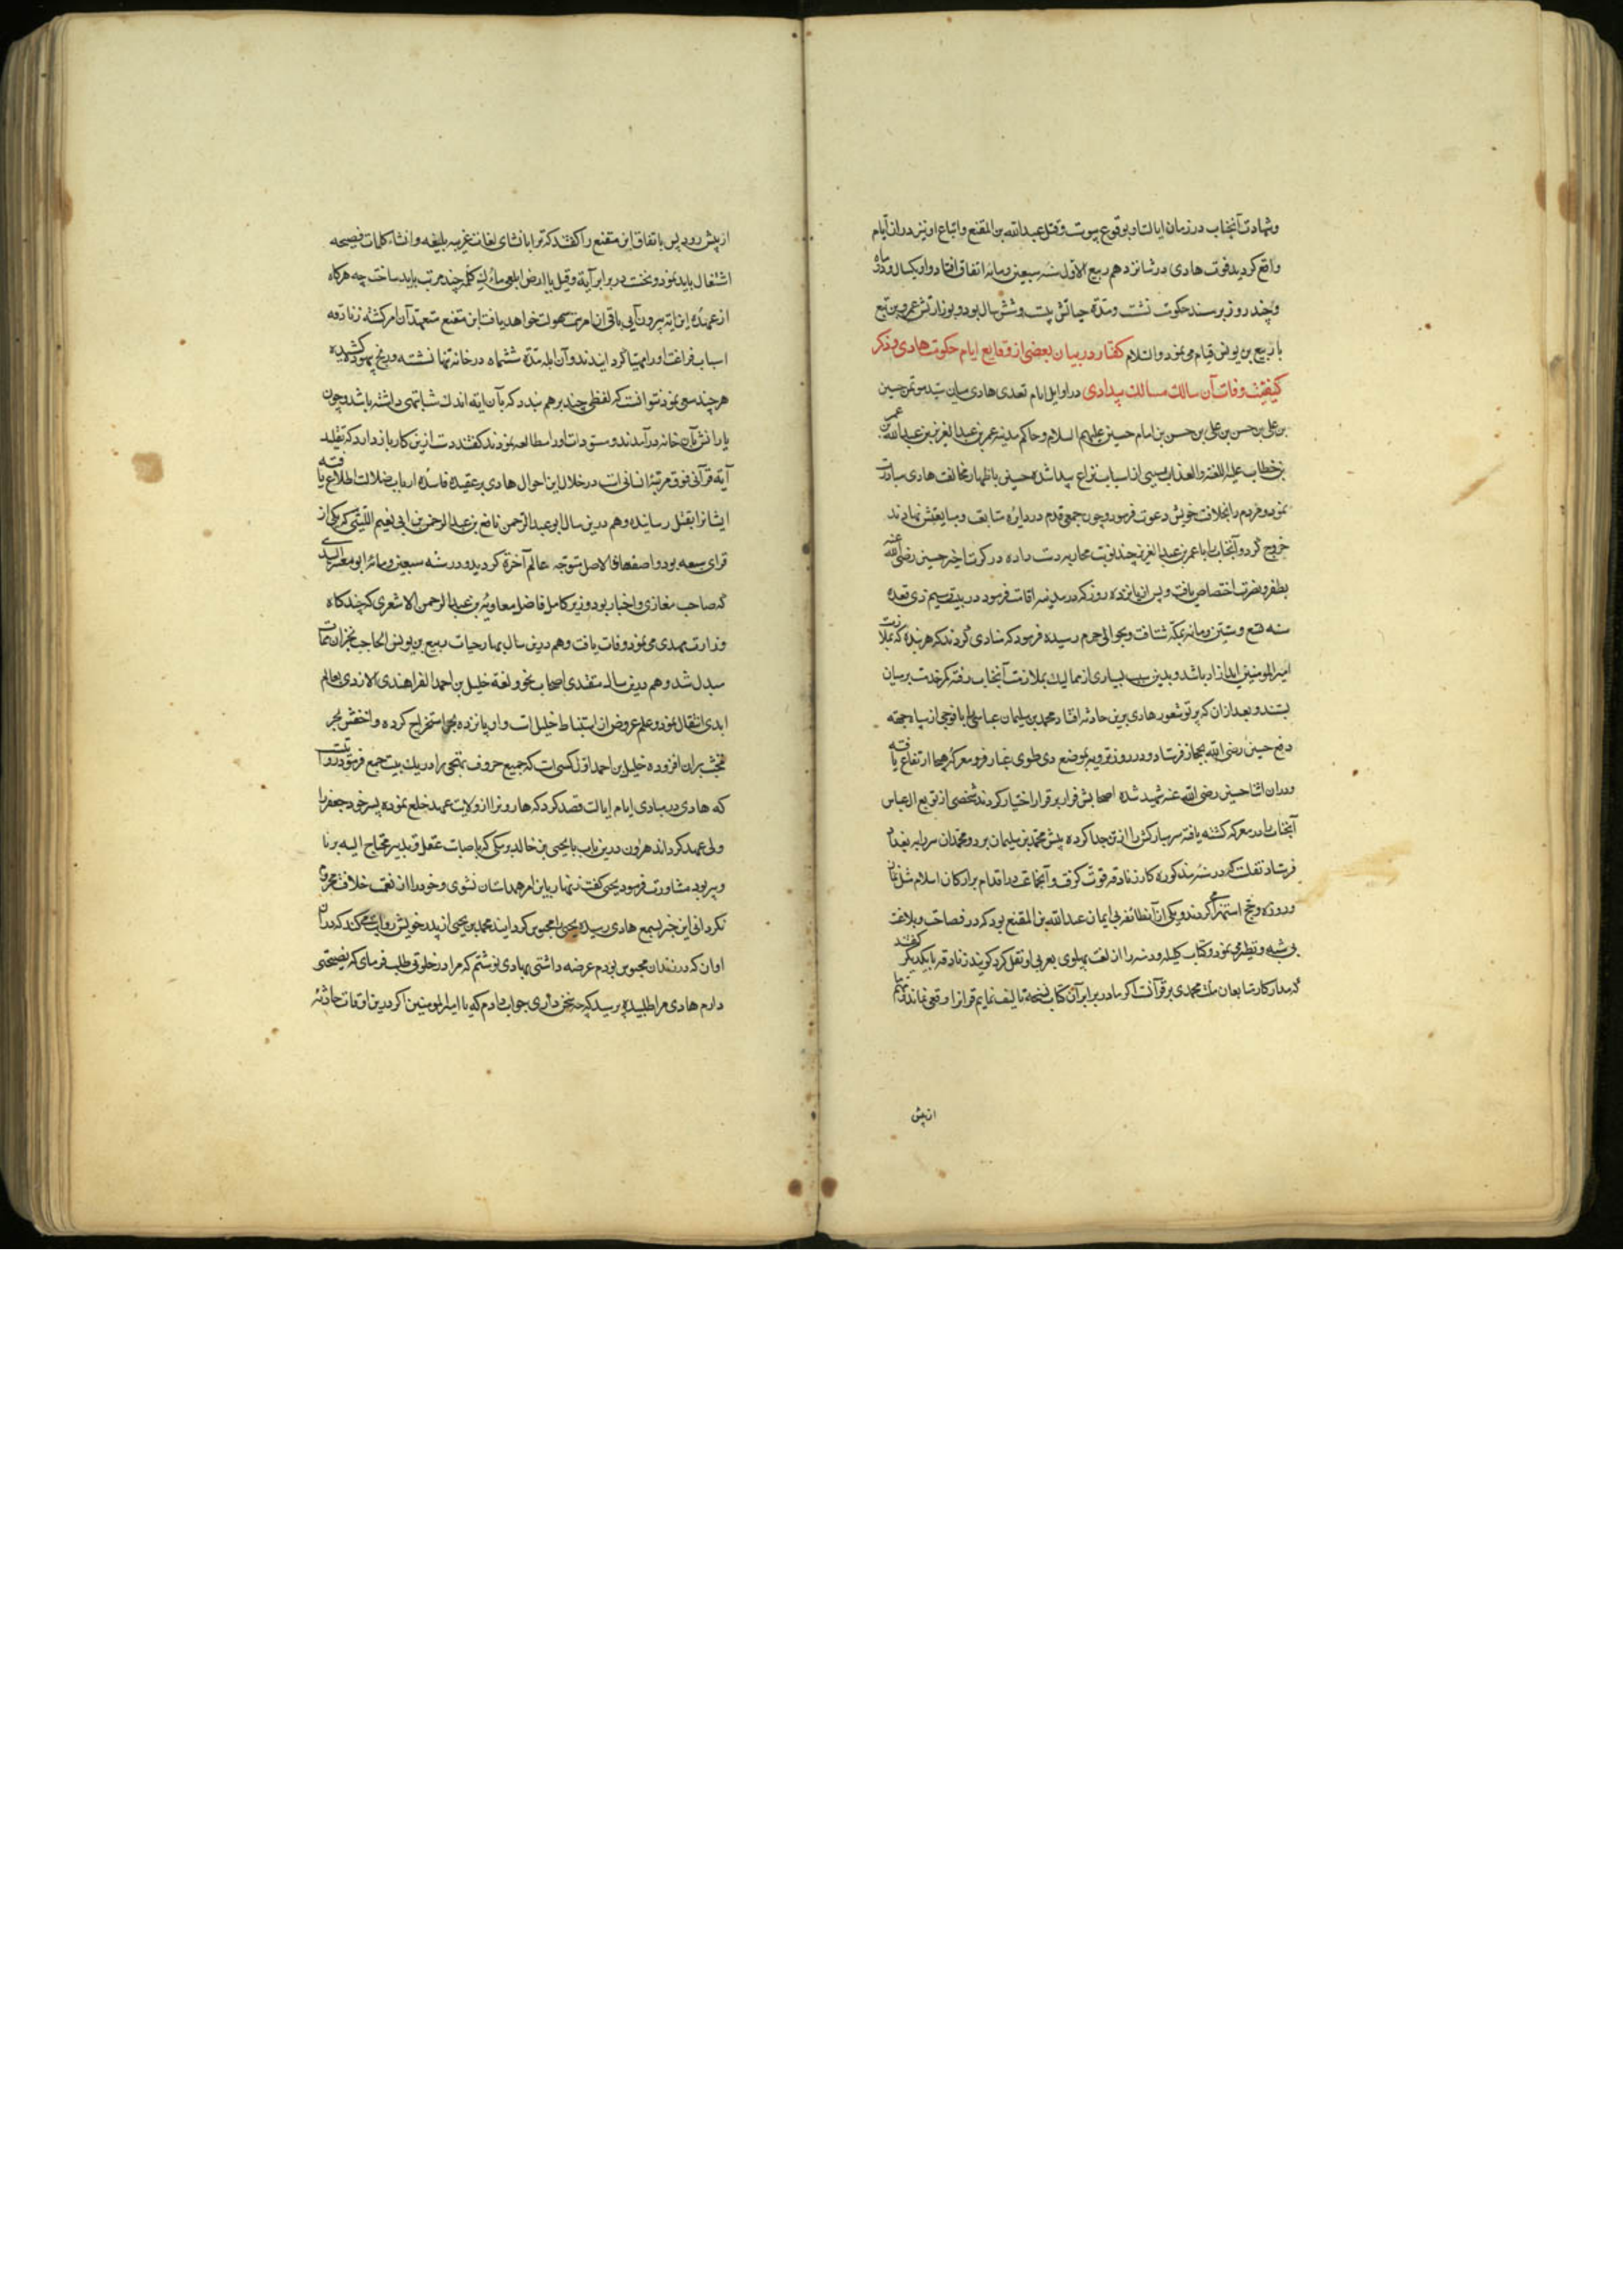 وشهادت آنجناب در زمان ایالت او بوقوع پیوست و قتل عبدالله بن المقنع و اتباع او نیز در ان ایام
واقع کردید فوت هادی در شانزدهم ربیع الاول سنه سبعین و مائه اتفاق افتاد و او یکسال و دو ماه
و چند روز بر مسند حکومت نشست و مدة حیاتش بیست و شش سال بود و بوزارتش عمرو بن
با ربیع بن یونس قیام می نمود والسلام کفتار در بیان بعضی از وقایع ایام حکومت هادی و ذکر
کیفیت وفات آن سالک مسالک بیدادی در اوایل ایام تعدی هادی میان سید حسین
بن علی بن حسن بن علی بن حسن بن امام حسین علیهم السلام و حاکم مدینه عمر بن عبدالعزیز بن عبدالله بن عمر
بن خطاب علیه اللعنه والعذاب بسببی از اسباب نزاع پیدا شده حسین باظهار مخالفت هادی مبادرت
نمود و مردم را بخلافت خویش دعوت فرمود و چون جمعی قدم در دایره متابعت و مبایعتش نهادند
خروج کرد و آنجناب را با عمر بن عبدالعزیز چند نوبت محاربه دست داده در کرت اخیر حسین رضی الله عنه
بظفر و نصرت اختصاص یافت و پس از یازده روز که در مدینه اقامت فرمود در بیست و سیم ذی قعده
سنه تسع و ستین و مائه بمکه شتافت و بحوالی حرم رسیده فرمود که منادی کردند که هر بنده که بملازمت
امیر المومنین اید ازاد باشد و بدین سبب بسیاری از ممالیک بملازمت آنجناب رفته کمر خدمت بر میان
بستند و بعد از ان که پرتو شعور هادی برین حادثه افتاد محمد بن سلیمان عباسی را با فوجی از سپاه جهة
دفع حسین رضی الله بحجاز فرستاد و در روز ترویه بموضع ذی طوی غبار معرکه هیجا ارتفاع یافته
و در ان اثنا حسین رضی الله عنه شهید شده اصحابش فرار بر قرار اختیار کردند شخصی از توابع ال عباس
آنجناب را در معرکه کشته یافته سر مبارکش را از تن جدا کرده پیش محمد بن سلیمان برد و محمد ان سر را به بغداد
فرستاد نقلست که در سنه مذکوره کار زنادقه قوت کرفت و آنجماعت در اقدام بر ارکان اسلام مثل نماز
و روزه و حج استهزا می کردند و یکی از آن طائفه بی ایمان عبدالله بن المقنع بود که در فصاحت و بلاغت
بی شبه و نظیر می نمود و کتاب کلیله و دمنه را از لغت پهلوی بعربی او نقل کرد کویند زنادقه با یکدیگر گفتند
که مدار کار متابعان ملت محمدی بر قرآنست اکر ما در برابر آن کتاب نسخه تالیف نمایم قرانرا وقعی نماند و مهم
از پیش
از پیش رود پس باتفاق ابن مقنع را کفتند که ترا بانشای لغات غریبه بلیغه و انشاء کلمات فصیحه
اشتغال باید نمود و نخست در برابر آیة و قیل یا ارض ابلعی ماءک کلمه چند مرتب باید ساخت چه هرکاه
از عهدهٔ این ایه بیرون آیی باقی ان امر بسهولت خواهد یافت ابن مقنع متعهد آن امر کشته زنادقه
اسباب فراغت او را مهیا کردانیدند و آن ابله مدة ششماه در خانه تنها نشسته و رنج بیهوده کشیده
هر چند سعی نمود نتوانست که لفظی چند بر هم بندد که بآن ایه اندک مشابهتی داشته باشد و چون
یارانش بآن خانه درآمدند و مسودات او را مطالعه نمودند کفتند دست ازین کار باز دارد که تقلید
آیة قرآنی فوق مرتبهٔ انسانی است در خلال این احوال هادی بر عقیده فاسدهٔ ارباب ضلالت اطلاع یافته
ایشانرا بقتل رسانید و هم درین سال ابو عبدالرحمن نافع بن عبدالرحمن بن ابی نعیم اللیثی که یکی از
قرای سبعه بود و اصفهانی الاصل متوجه عالم آخرة کردید و در سنه سبعین و مائه ابو معشر السدی
که صاحب مغازی و اخبار بود و وزیر کامل فاضل معاویة بن عبدالرحمن الاشعری که چند کاه
وزارت مهدی می نمود وفات یافت و هم درین سال بهار حیات ربیع بن یونس الحاجب بخزان ممات
مبدل شد و هم درین سال مقتدی اصحاب نحو و لغة خلیل بن احمد الفراهیدی الازدی بعالم
ابدی انتقال نمود و علم عروض از استنباط خلیل است و او پانزده بحر استخراج کرده و اخفش بحر
بران افزوده خلیل بن احمد اول کسی است که جمیع حروف تهجی را در یک بیت جمع فرمود روایتست
که هادی در مبادی ایام ایالت قصد کرد که هارونرا از ولایت عهد خلع نموده پسر خود جعفر را
ولی عهد کرداند و درین باب با یحیی بن خالد برمکی که باصابت عقل و تدبیر محتاج الیه برنا
و پیر بود مشاورت فرمود یحیی کفت زنهار باین امر همداستان نشوی و خود را از نعمت خلافت محروم
نکردانی این خبر بسمع هادی رسیده یحیی را محبوس کردانید محمد بن یحیی از پدر خویش روایت میکند که در ان
اوان که در زندان محبوس بودم عرضه داشتی بهادی نوشتم که مرا در خلوتی طلب فرمای که نصیحتی
دارم هادی مرا طلبیده پرسید که چه سخن داری جواب دادم که یا امیر المومنین اکر درین اوقات حادثهٔ